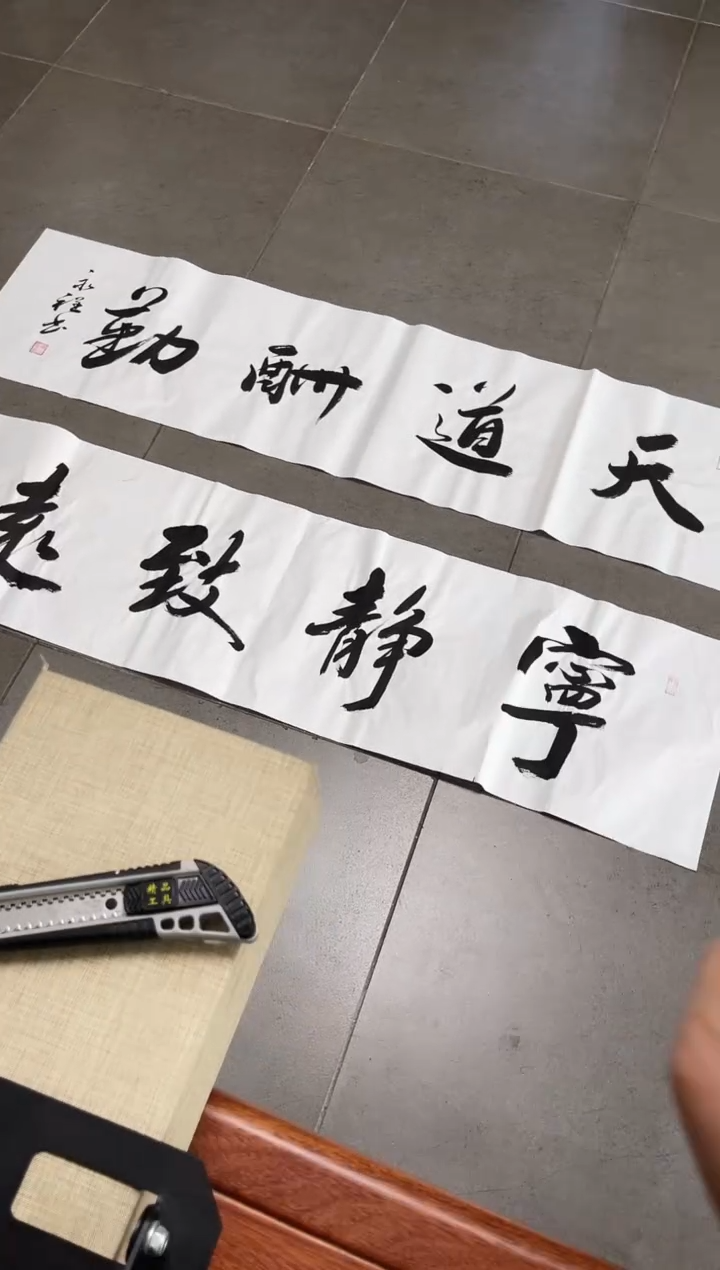 天道酬勤
永程书
寧静致远
精品
工具